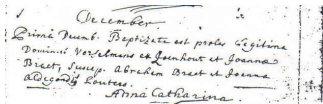 December.
Primâ Decemb. Baptizata est proles Legitima
Dominici Verselmens et Joenhout et Joanna
Braet, Suscep. Abrahem Braet et Joanna
Aldegondis Louters.
Anna Catharina.